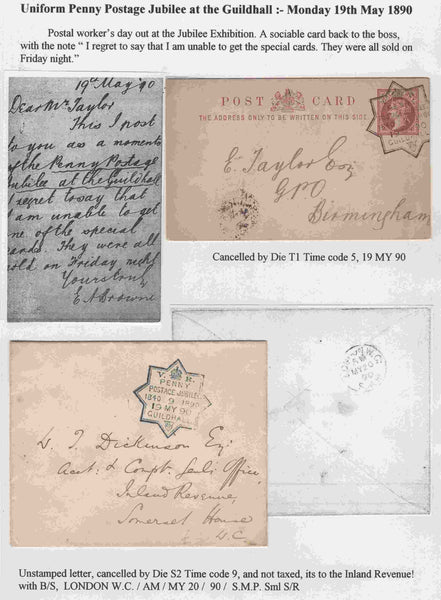 Uniform Penny Postage Jubilee at the Guildhall :- Monday 19th May 1890
Postal worker's day out at the Jubilee Exhibition. A sociable card back to the boss,
with the note " I regret to say that I am unable to get the special cards. They were all sold on
Friday night."
19th May '90
Dear Mr Taylor
This I post
to you as a momento
of the Penny Postage
Jubilee at the Guildhall
I regret to say that
I am unable to get
one of the special
cards. They were all
sold on Friday night
Yours truly
E A Browne
POST CARD
THE ADDRESS ONLY TO BE WRITTEN ON THIS SIDE
GUILDHALL
E. Taylor Esq
GPO
Birmingham
Cancelled by Die T1 Time code 5, 19 MY 90
LONDON W.C.
AM
MY 20
90
V. R.
PENNY
POSTAGE JUBILEE
1840 9 1890
19 MY 90
GUILDHALL
W. T. Dickinson Esq
Acct. & Compt. Genl's Office,
Inland Revenue,
Somerset House
W.C.
Unstamped letter, cancelled by Die S2 Time code 9, and not taxed, its to the Inland Revenue!
with B/S, LONDON W.C. / AM / MY 20 / 90 / S.M.P. Sml S/R